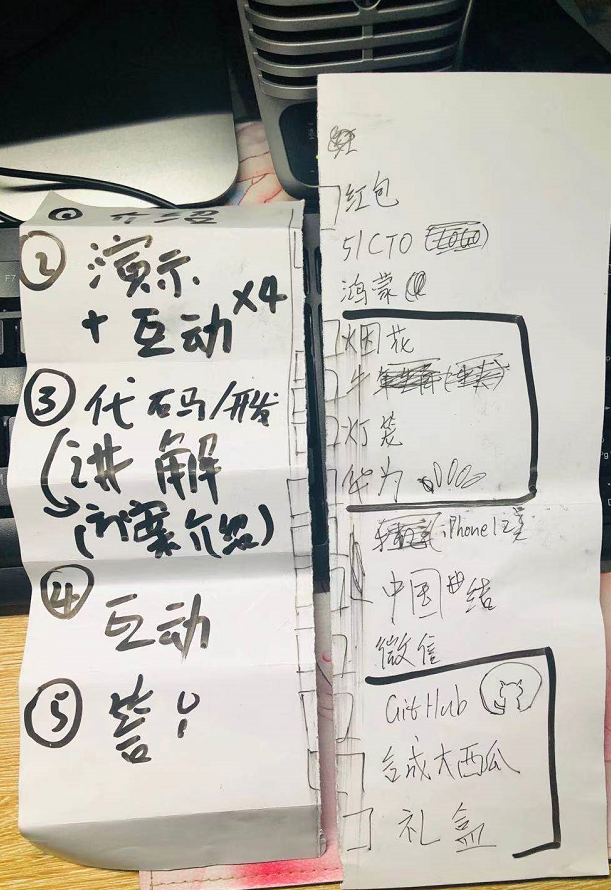 ① 介绍
② 演示
+ 互动 ×4
③ 代码/开发
讲解
(方案介绍)
④
互动
⑤ 答!
红包
51CTO
鸿蒙
烟花
牛
灯笼
华为
iPhone12
中国结
微信
GitHub
合成大西瓜
礼盒
F7